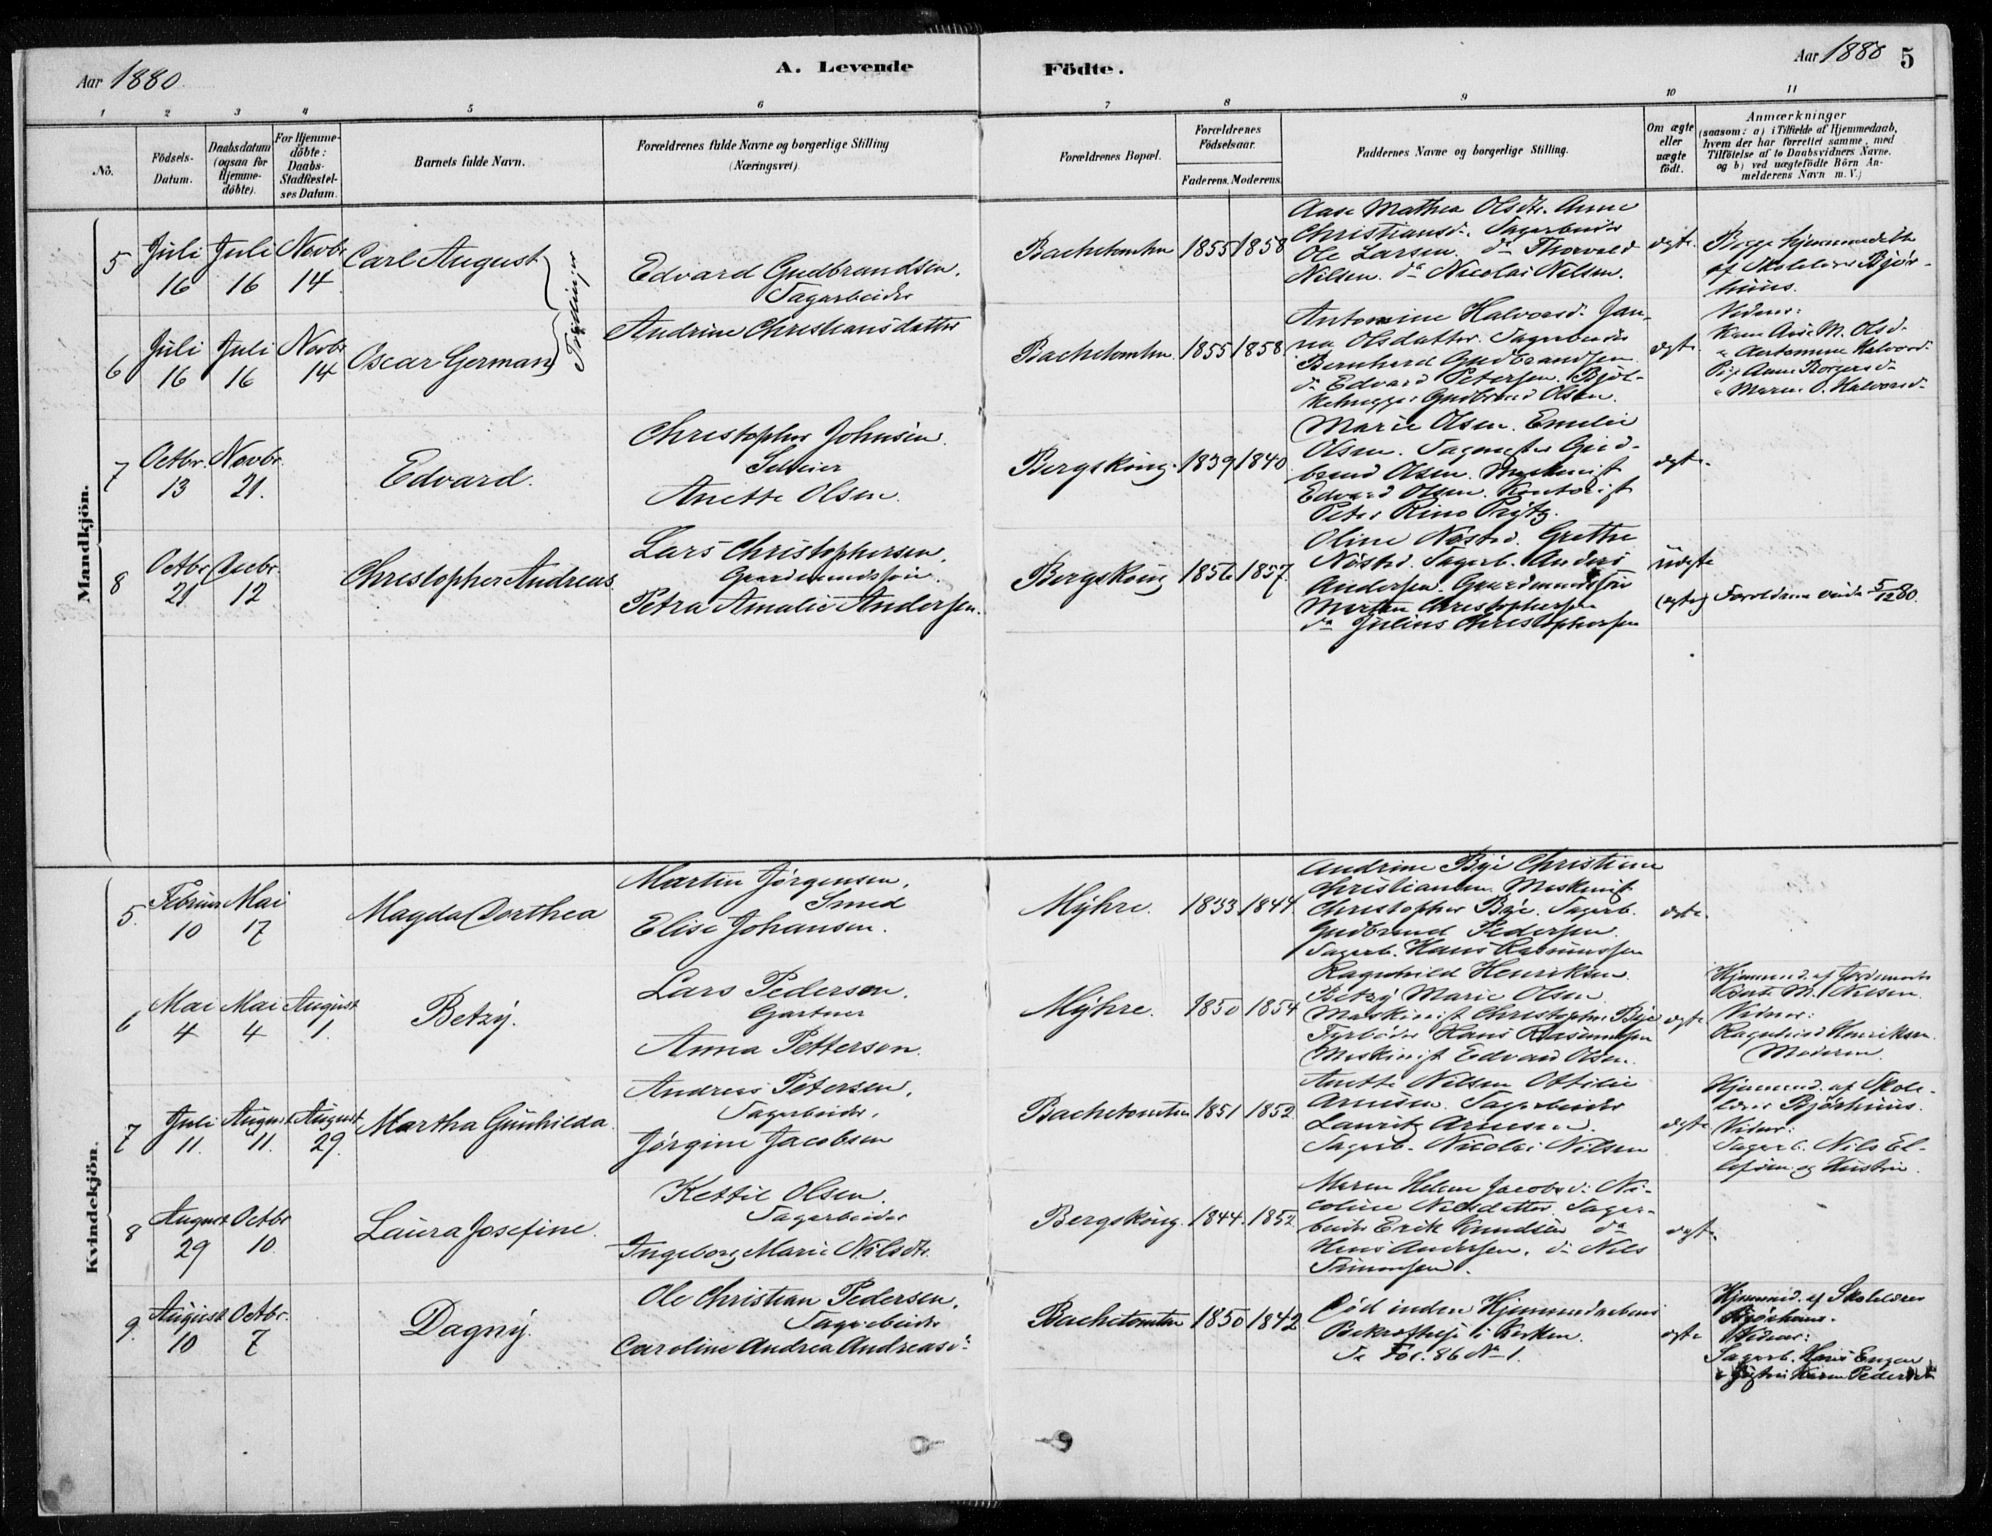 Aar 1880.
A. Levende Födte.
Aar 1880
5
1 2 3 4 5 6 7 8 9 10 11
No.
Födsels-Datum.
Daabsdatum (ogsaa for Hjemmedöbte).
For Hjemmedöbte: Daabs-Stadfæstelses Datum.
Barnets fulde Navn.
Forældrenes fulde Navne og borgerlige Stilling (Næringsvei).
Forældrenes Bopæl.
Forældrenes Födselsaar.
Faderens. Moderens.
Faddernes Navne og borgerlige Stilling.
Om ægte eller uægte födt.
Anmærkninger (saasom: a) i Tilfælde af Hjemmedaab, hvem der har forrettet samme, med Tilföielse af to Daabsvidners Navne, og b) ved uægtefödte Börn Anmelderens Navn m. V.)
Mandkjön.
5 Juli 16 Juli 16 Novbr 14 Carl August
Tvillinger
Edvard Gudbrandsen.
Sagarbeider
Andrine Christiansdatter
Bachetomten 1855 1858
Aase Mathea Olsdtr. Anne
Christiansd. Sagarbeider
Ole Larsen. do Thorvald
Nilsen. do Nicolai Nilsen.
ægte.
Begge hjemmedøbte
af Skolelærer Bjør-
huus.
Vidner:
6 Juli 16 Juli 16 Novbr 14 Oscar German
Bachetomten. 1855 1858
Antonine Halvorsd. Jan-
na Olsdatter. Sagarbeider
Bernhard Gudbrandsen
do Edvard Petersen.
Gudbrand Olsen.
ægte.
Kone Aase M. Olsd.
" Antonine Halvorsd.
Pige Anne Borgersd.
" Maren O. Halvorsd.
7 Octbr. 13 Novbr. 21. Edvard.
Christopher Johnsen.
Anette Olsen.
Bergskoug. 1839 1840
Marie Olsen. Emelie
Olsen. Sagmester Gud-
brand Olsen. Maskinist
Edvard Olsen. Kontorist
Peter Rino Prytz.
ægte.
8 Octbr 21 Decbr. 12 Christopher Andreas.
Lars Christophersen.
Gaardmandssøn.
Petra Amalie Andersen.
Bergskoug 1856 1857.
Oline Nøsted. Grethe
Nøsted. Sagarb. Anders
Andersen. Gaardmandssøn
Martin Christophersen
do Julius Christophersen
uægte
(ægte)
Forældrene viede 5/12 80.
Kvindekjön.
5. Februar 10 Mai 17 Magda Dorthea
Martin Jørgensen.
Smed
Elise Johansen.
Myhre. 1833 1844.
Andrine Bye Christine
Christiansen. Maskinist
Christopher Bye. Sagarb.
Gudbrand Pedersen.
Sagarb. Hans Rasmussen
ægte.
6 Mai 4 Mai 4 August 1. Betzy.
Lars Pederson.
Gartner
Anna Petterson.
Myhre. 1850 1854
Ragnhild Henriksen.
Betzy Marie Olsen
Maskinist Christopher Bye
Fyrbøder Hans Rasmussen
Maskinist Edvard Olsen.
ægte
Hjemmed. af Jordmoder
M. Nilsen.
Vidner:
Ragnhild Henriksen.
Moderen.
7 Juli 11. August 11. August 29. Martha Gunhilda.
Andreas Petersen.
Sagarbeider.
Jørgine Jacobsen
Bachetomten 1851 1852.
Anette Nilsen Ottilie
Arnesen. Sagarbeider
Lauritz Arnesen.
Sagarb. Nicolai Nilsen
ægte
Hjemmed. af Skole-
lærer Bjørhuus.
Vidner:
Sagarb. Nils El-
lefsen og Hustru.
8 August 29 Octbr 10. Laura Josefine.
Kettil Olsen.
Sagarbeider
Ingeborg Marie Nilsdtr.
Bergskoug. 1844. 1852.
Maren Helene Jacobsd. Ni-
coline Nilsdatter. Sagar-
beider Erik Knudsen do
Hans Andersen. do Nils
Simonsen.
ægte.
9 August 10 Octbr. 7 Dagny.
Ole Christian Pedersen.
Sagarbeider
Caroline Andrea Andreasd.
Bachetomten 1850 1842
Død inden Hjemmedaabens
Bekræftelse i Kirken.
Se Fol. 86 No 1.
ægte
Hjemmed. af Skolelærer
Bjørhuus.
Vidner:
Sagarb. Hans Engen
Karen Pedersdtr